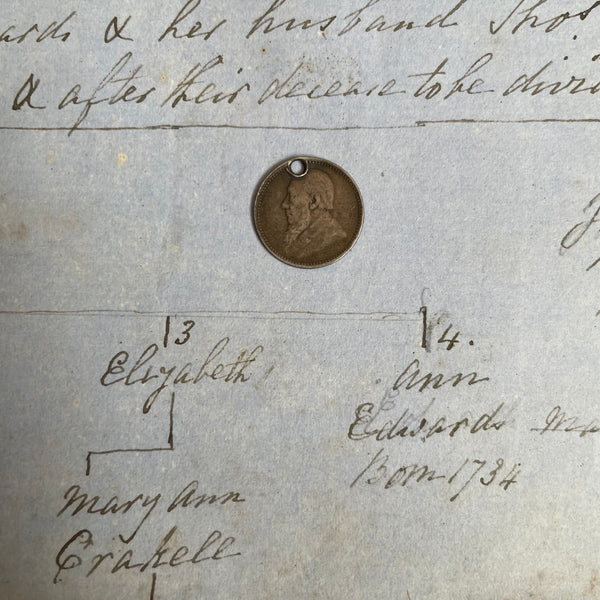 ards & her husband Thos.
& after their decease to be divi
3
Elizabeth
4.
Ann
Edwards Ma
Born 1734
Mary Ann
Crakell